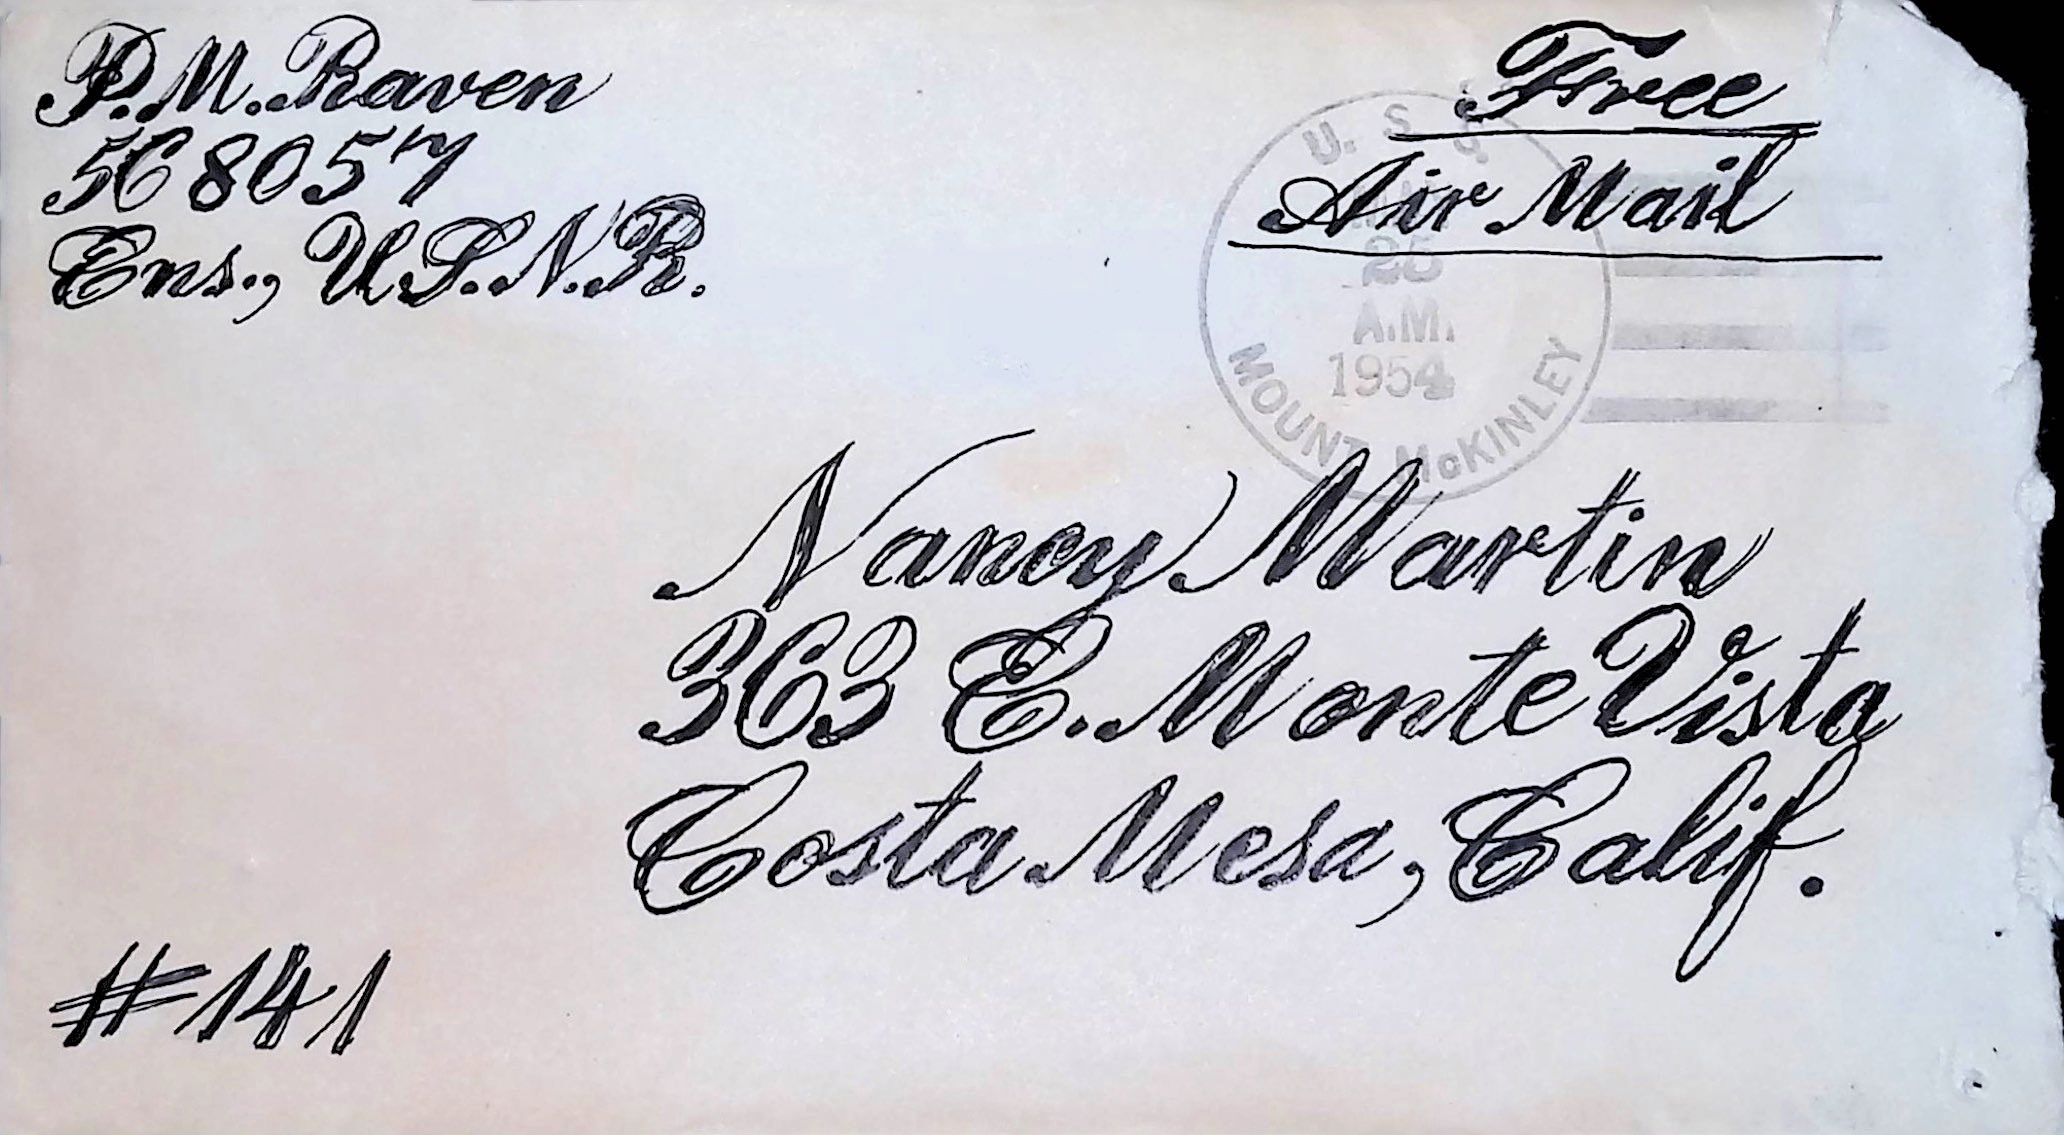 P. M. Raven
568057
Ens., U.S.N.R.
Free
Air Mail
U. S. S.
25
A.M.
1954
MOUNT McKINLEY
Nancy Martin
363 E. Monte Vista
Costa Mesa, Calif.
#141